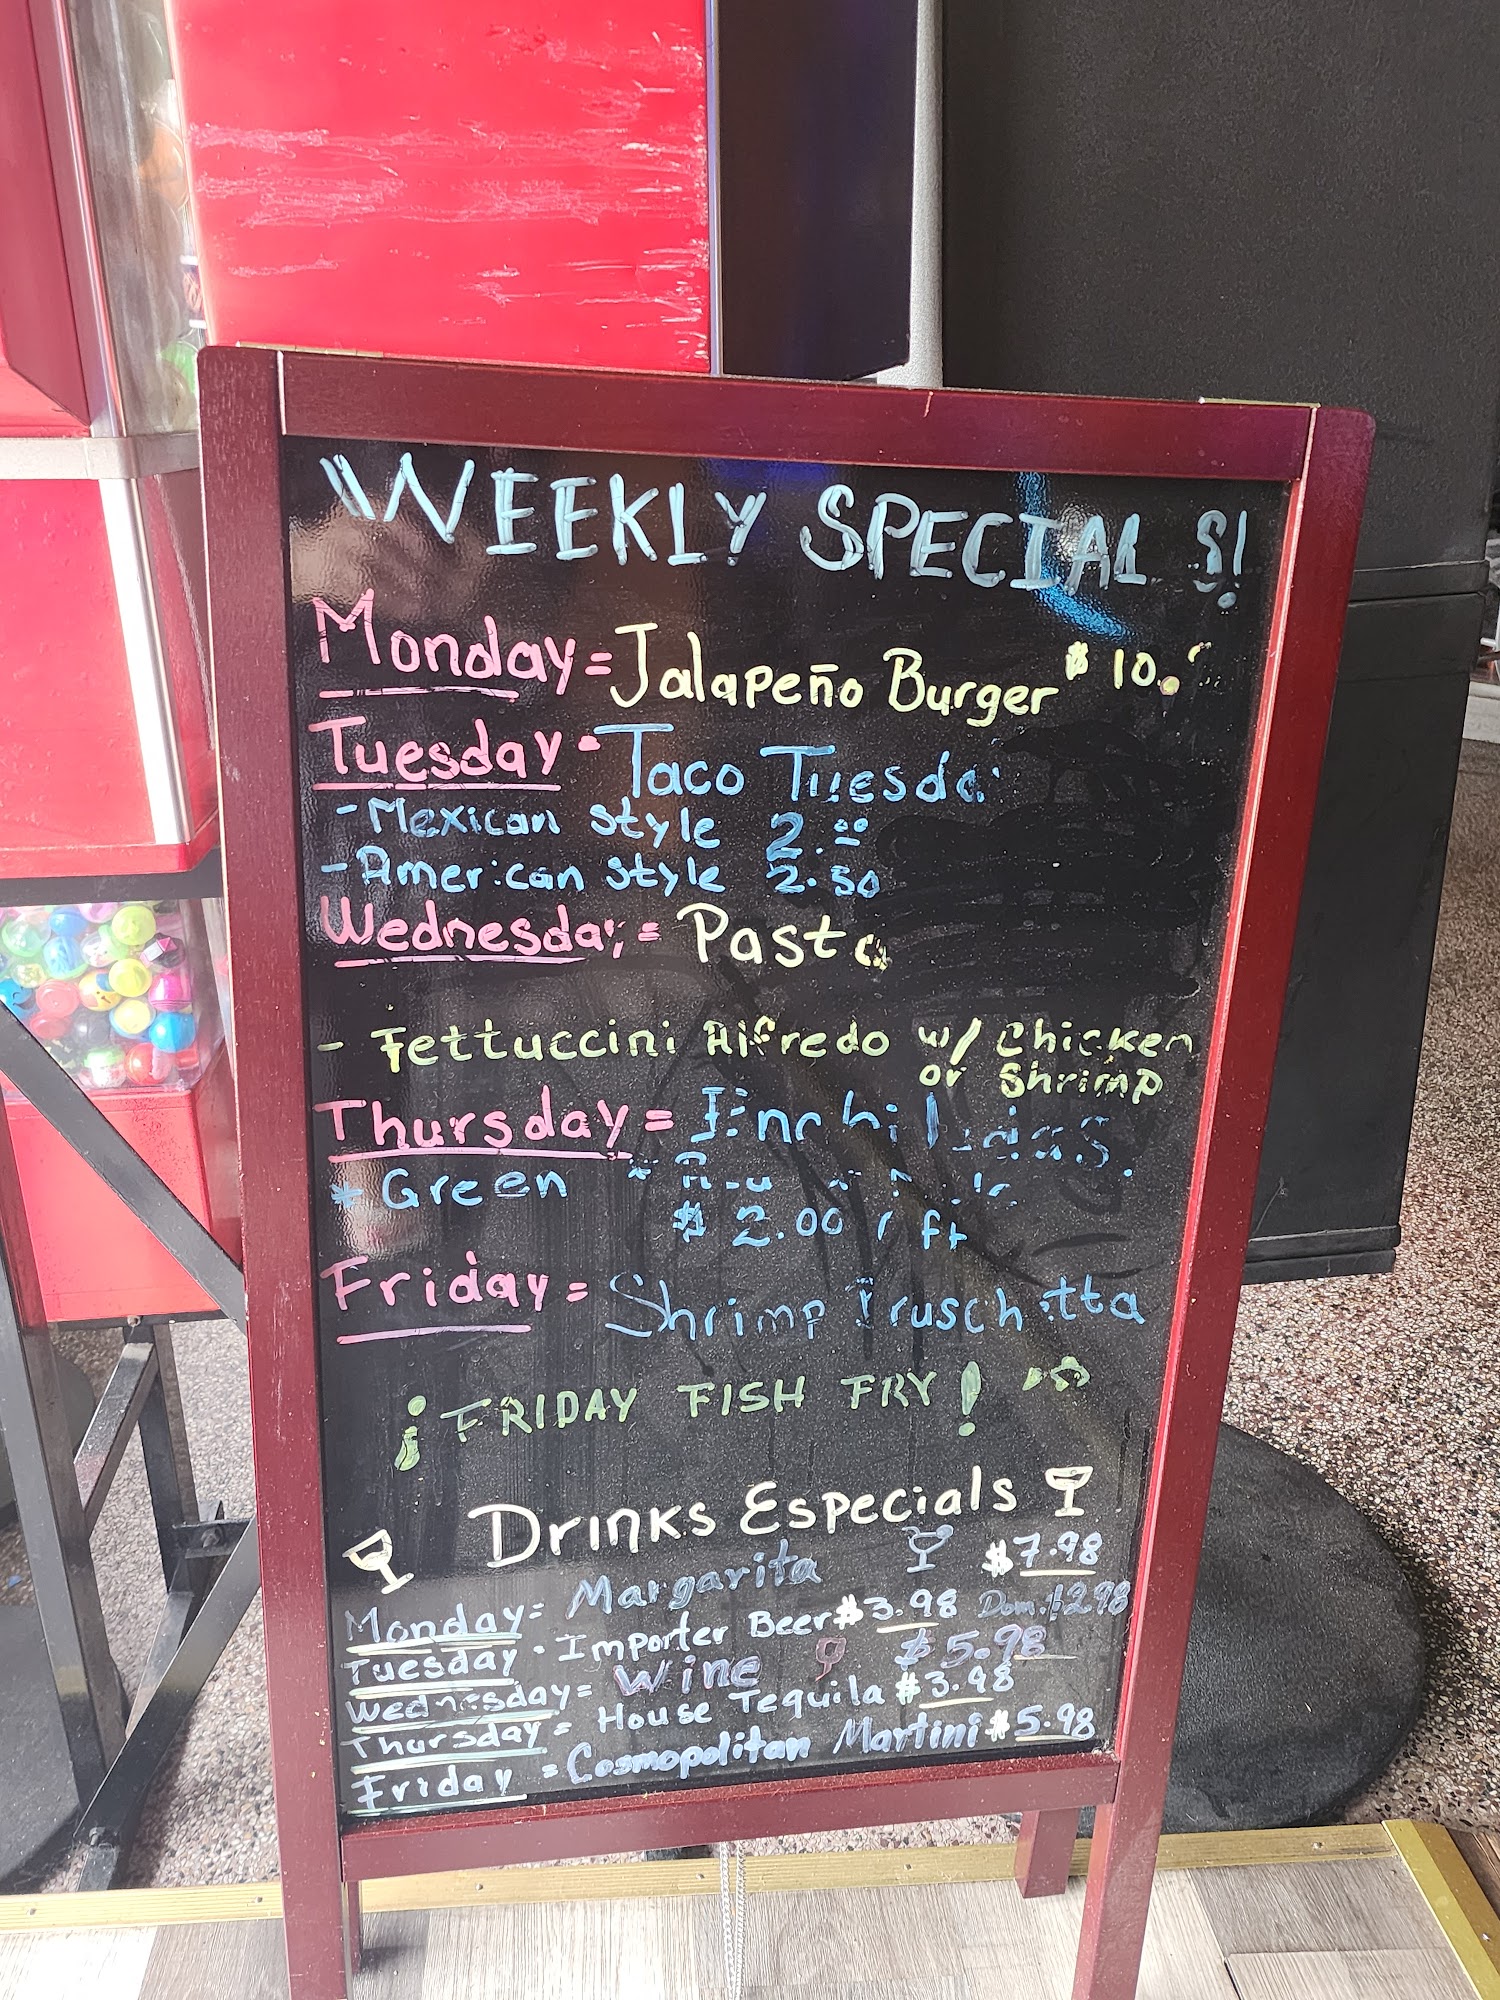 WEEKLY SPECIALS!
Monday = Jalapeño Burger $ 10.
Tuesday - Taco Tuesda
- Mexican style 2.00
- American style 2.50
Wednesday = Pasta
- Fettuccini Alfredo w/ Chicken
or Shrimp
Thursday = Enchiladas
* Green *
$ 2.00 off
Friday = Shrimp Bruschetta
¡FRIDAY FISH FRY!
Drinks Especials
Monday = Margarita $7.98
Tuesday - Importer Beer $3.98 Dom. $2.98
Wednesday = Wine $5.98
Thursday = House Tequila $3.98
Friday = Cosmopolitan Martini $5.98